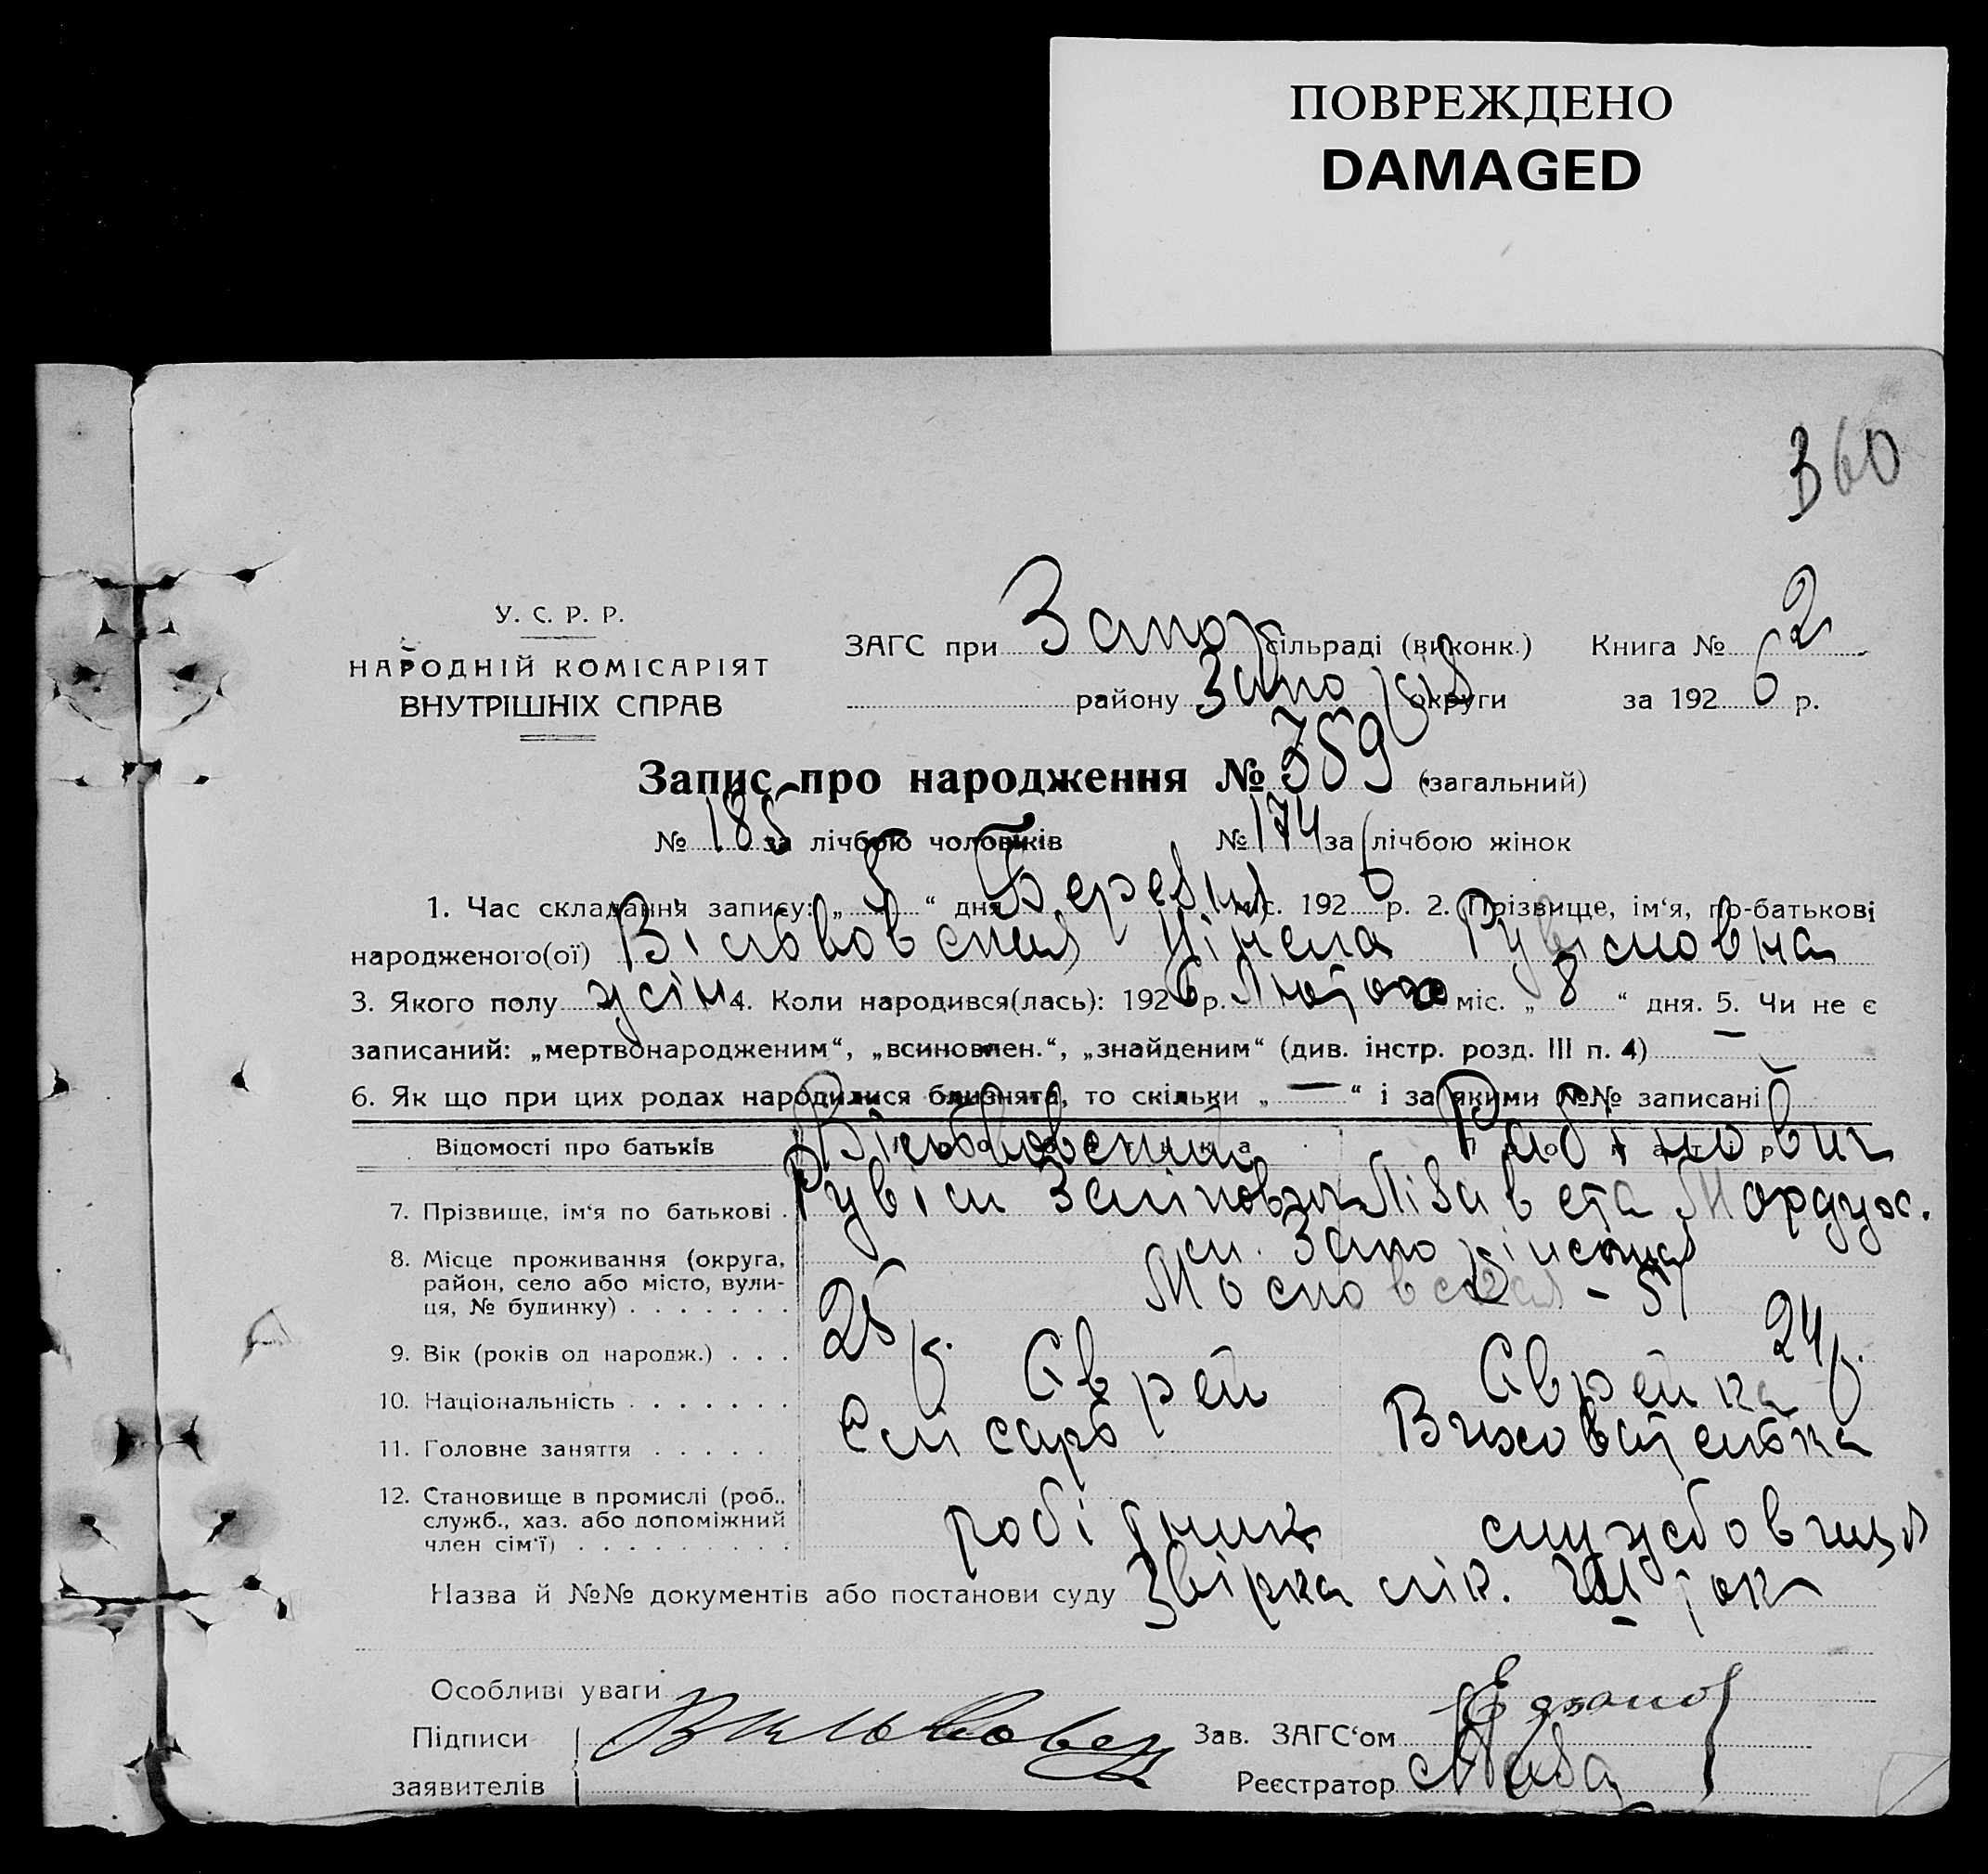 ПОВРЕЖДЕНО
DAMAGED
360
У. С. Р. Р.
НАРОДНІЙ КОМІСАРІЯТ
ВНУТРІШНІХ СПРАВ
ЗАГС при Запор сільраді (виконк.) Книга № 2
району Запоріз округи за 1926 р.
Запис про народження № 359 (загальний)
№ 185 за лічбою чоловіків № 174 за лічбою жінок
1. Час складання запису: „ 5 “ дня Березня міс. 1926 р. 2. Прізвище, ім‘я, по-батькові
народженого(ої) Вільковская Нінела Рувімовна
3. Якого полу жін 4. Коли народився(лась): 1926 р. Лютого міс. „ 8 “ дня. 5. Чи не є
записаний: „мертвонародженим“, „всиновлен.“, „знайденим“ (див. інстр. розд. III п. 4) —
6. Як що при цих родах народилися близнята, то скільки „ — “ і за якими №№ записані
Відомості про батьків Вільковский Рабінович
7. Прізвище, ім‘я по батькові . Рувім Лізавета Мордух.
8. Місце проживання (округа, м.
район, село або місто, вули- Московская - 51
ця, № будинку) . . . . . . .
9. Вік (років од народж.) . . . 25 р. 24 р.
10. Національність . . . . . . . Єврей Єврейка
11. Головне заняття . . . . . Слісарь Вихователька
12. Становище в промислі (роб..
служб., хаз. або допоміжний робітник службовиця
член сім‘ї) . . . . . . . . .
Назва й №№ документів або постанови суду
Особливі уваги
Підписи Зав. ЗАГС‘ом
заявителів Реєстратор